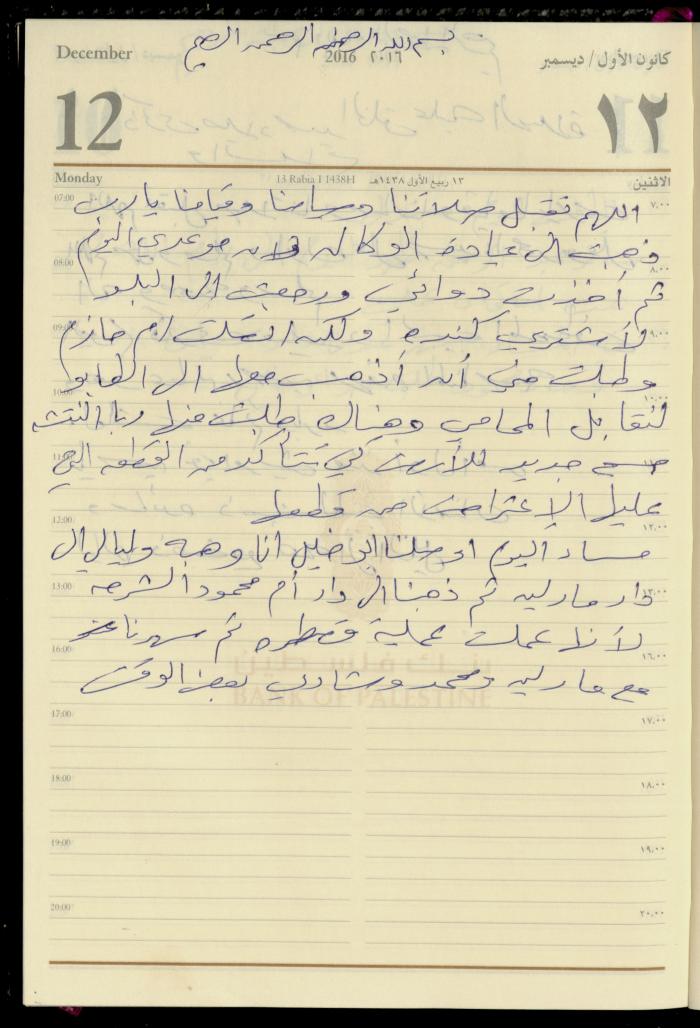 بسم الله الرحمن الرحيم
December
2016 ٢٠١٦
كانون الأول / ديسمبر
12
١٢
Monday
13 Rabia I 1438H
١٣ ربيع الأول ١٤٣٨هـ
الاثنين
اللهم تقبل صلاتنا وصيامنا وقيامنا يا رب
ذهبت الى عيادة الوكالة لأن موعدي اليوم
ثم أخذت دوائي ورجعت الى البلد
لأشتري كندره ولكن اتصلت ام حازم
وطلبت مني أن أذهب معها الى الطابو
لنقابل المحامي وهناك طلبت منها رنا النتشه
مسح جديد للأرض كي تتأكد من القطعه التي
عليها الإعتراض من قطعها
مساء اليوم اوصلنا ابو خليل انا وهبه وليالي ال
دار مارلين ثم ذهبنا ال دار أم محمود الشرحه
لأنها عملت عملية قسطره ثم سهرنا
مع مارلين ومحمد وشادي بعض الوقت
07:00
08:00
09:00
10:00
11:00
12:00
13:00
16:00
17:00
18:00
19:00
20:00
٧.٠٠
٨.٠٠
٩.٠٠
١٠.٠٠
١٢.٠٠
١٣.٠٠
١٦.٠٠
١٧.٠٠
١٨.٠٠
١٩.٠٠
٢٠.٠٠
بنك فلسطين
BANK OF PALESTINE